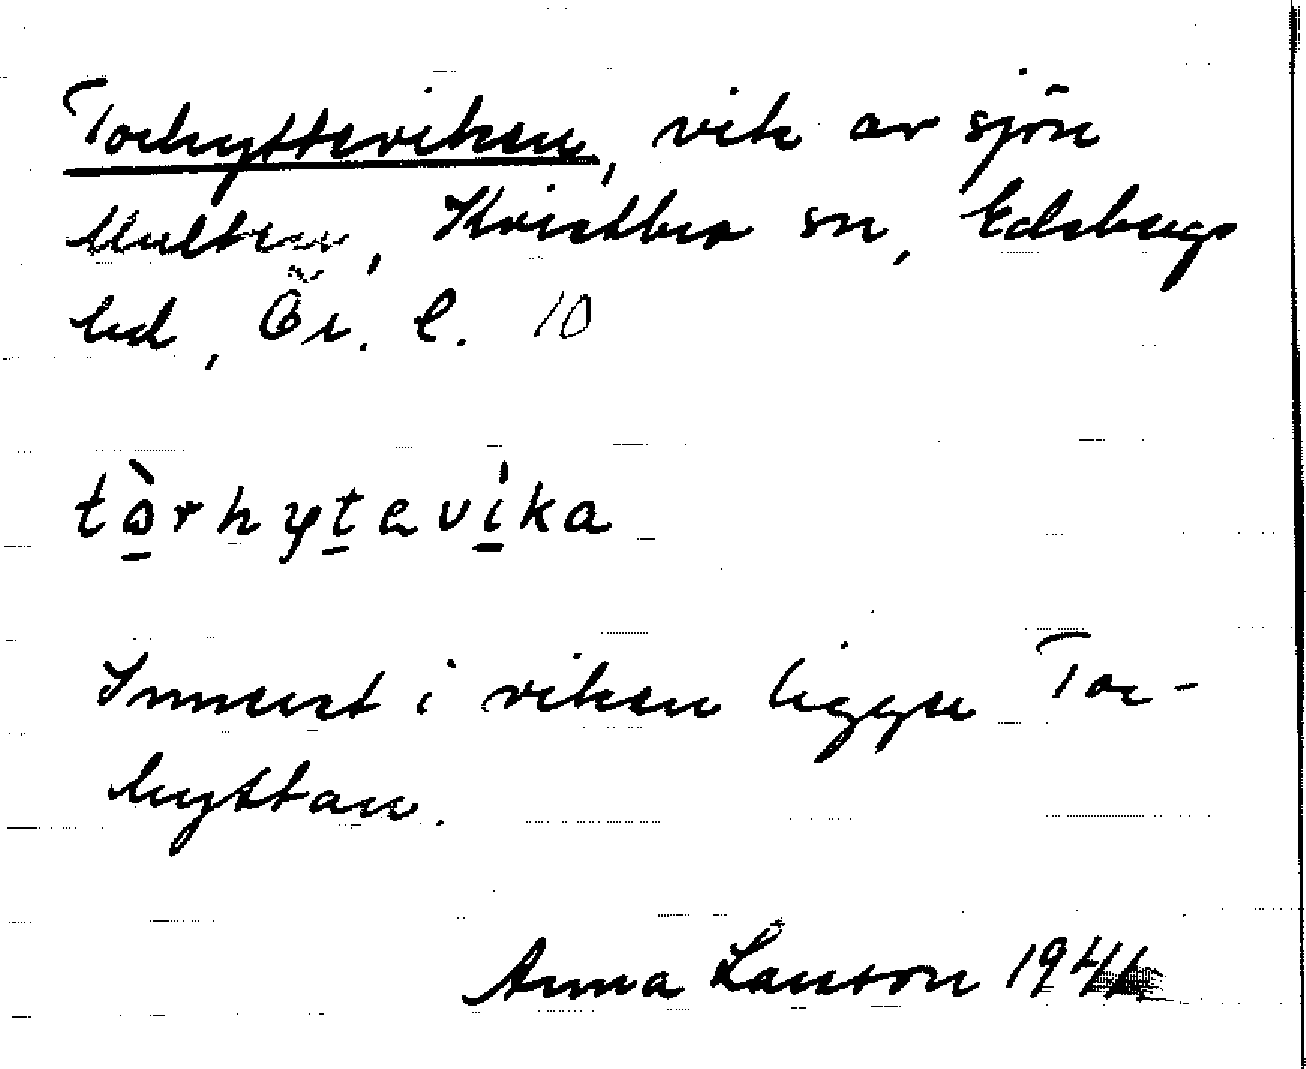 Torhytteviken, vik av sjön
Multen, Kvistbro sn, Edsbergs
hd, Ör. l. 10
tòrhytavika
Innerst i viken ligger Tor-
hyttan.
Anna Larsson 194